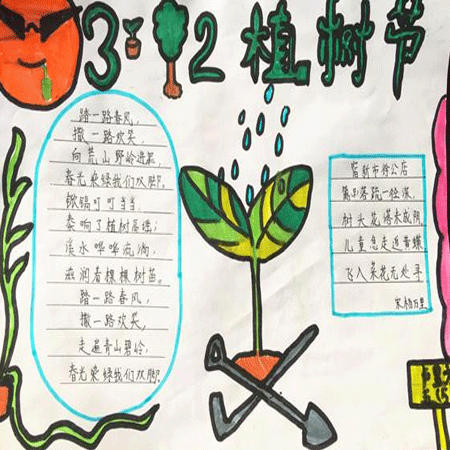 3·12植树节
踏一路春风,
撒一路欢笑,
向荒山野岭进军,
春光染绿我们双脚。
锹镐叮叮当当,
奏响了植树歌谣;
溪水哗哗流淌,
滋润着棵棵树苗。
踏一路春风,
撒一路欢笑,
走遍青山碧岭,
春光染绿我们双脚。
宿新市徐公店
落疏一径深
树头花落未成阴
儿童急走追黄蝶
飞入菜花无处寻
宋 杨万里